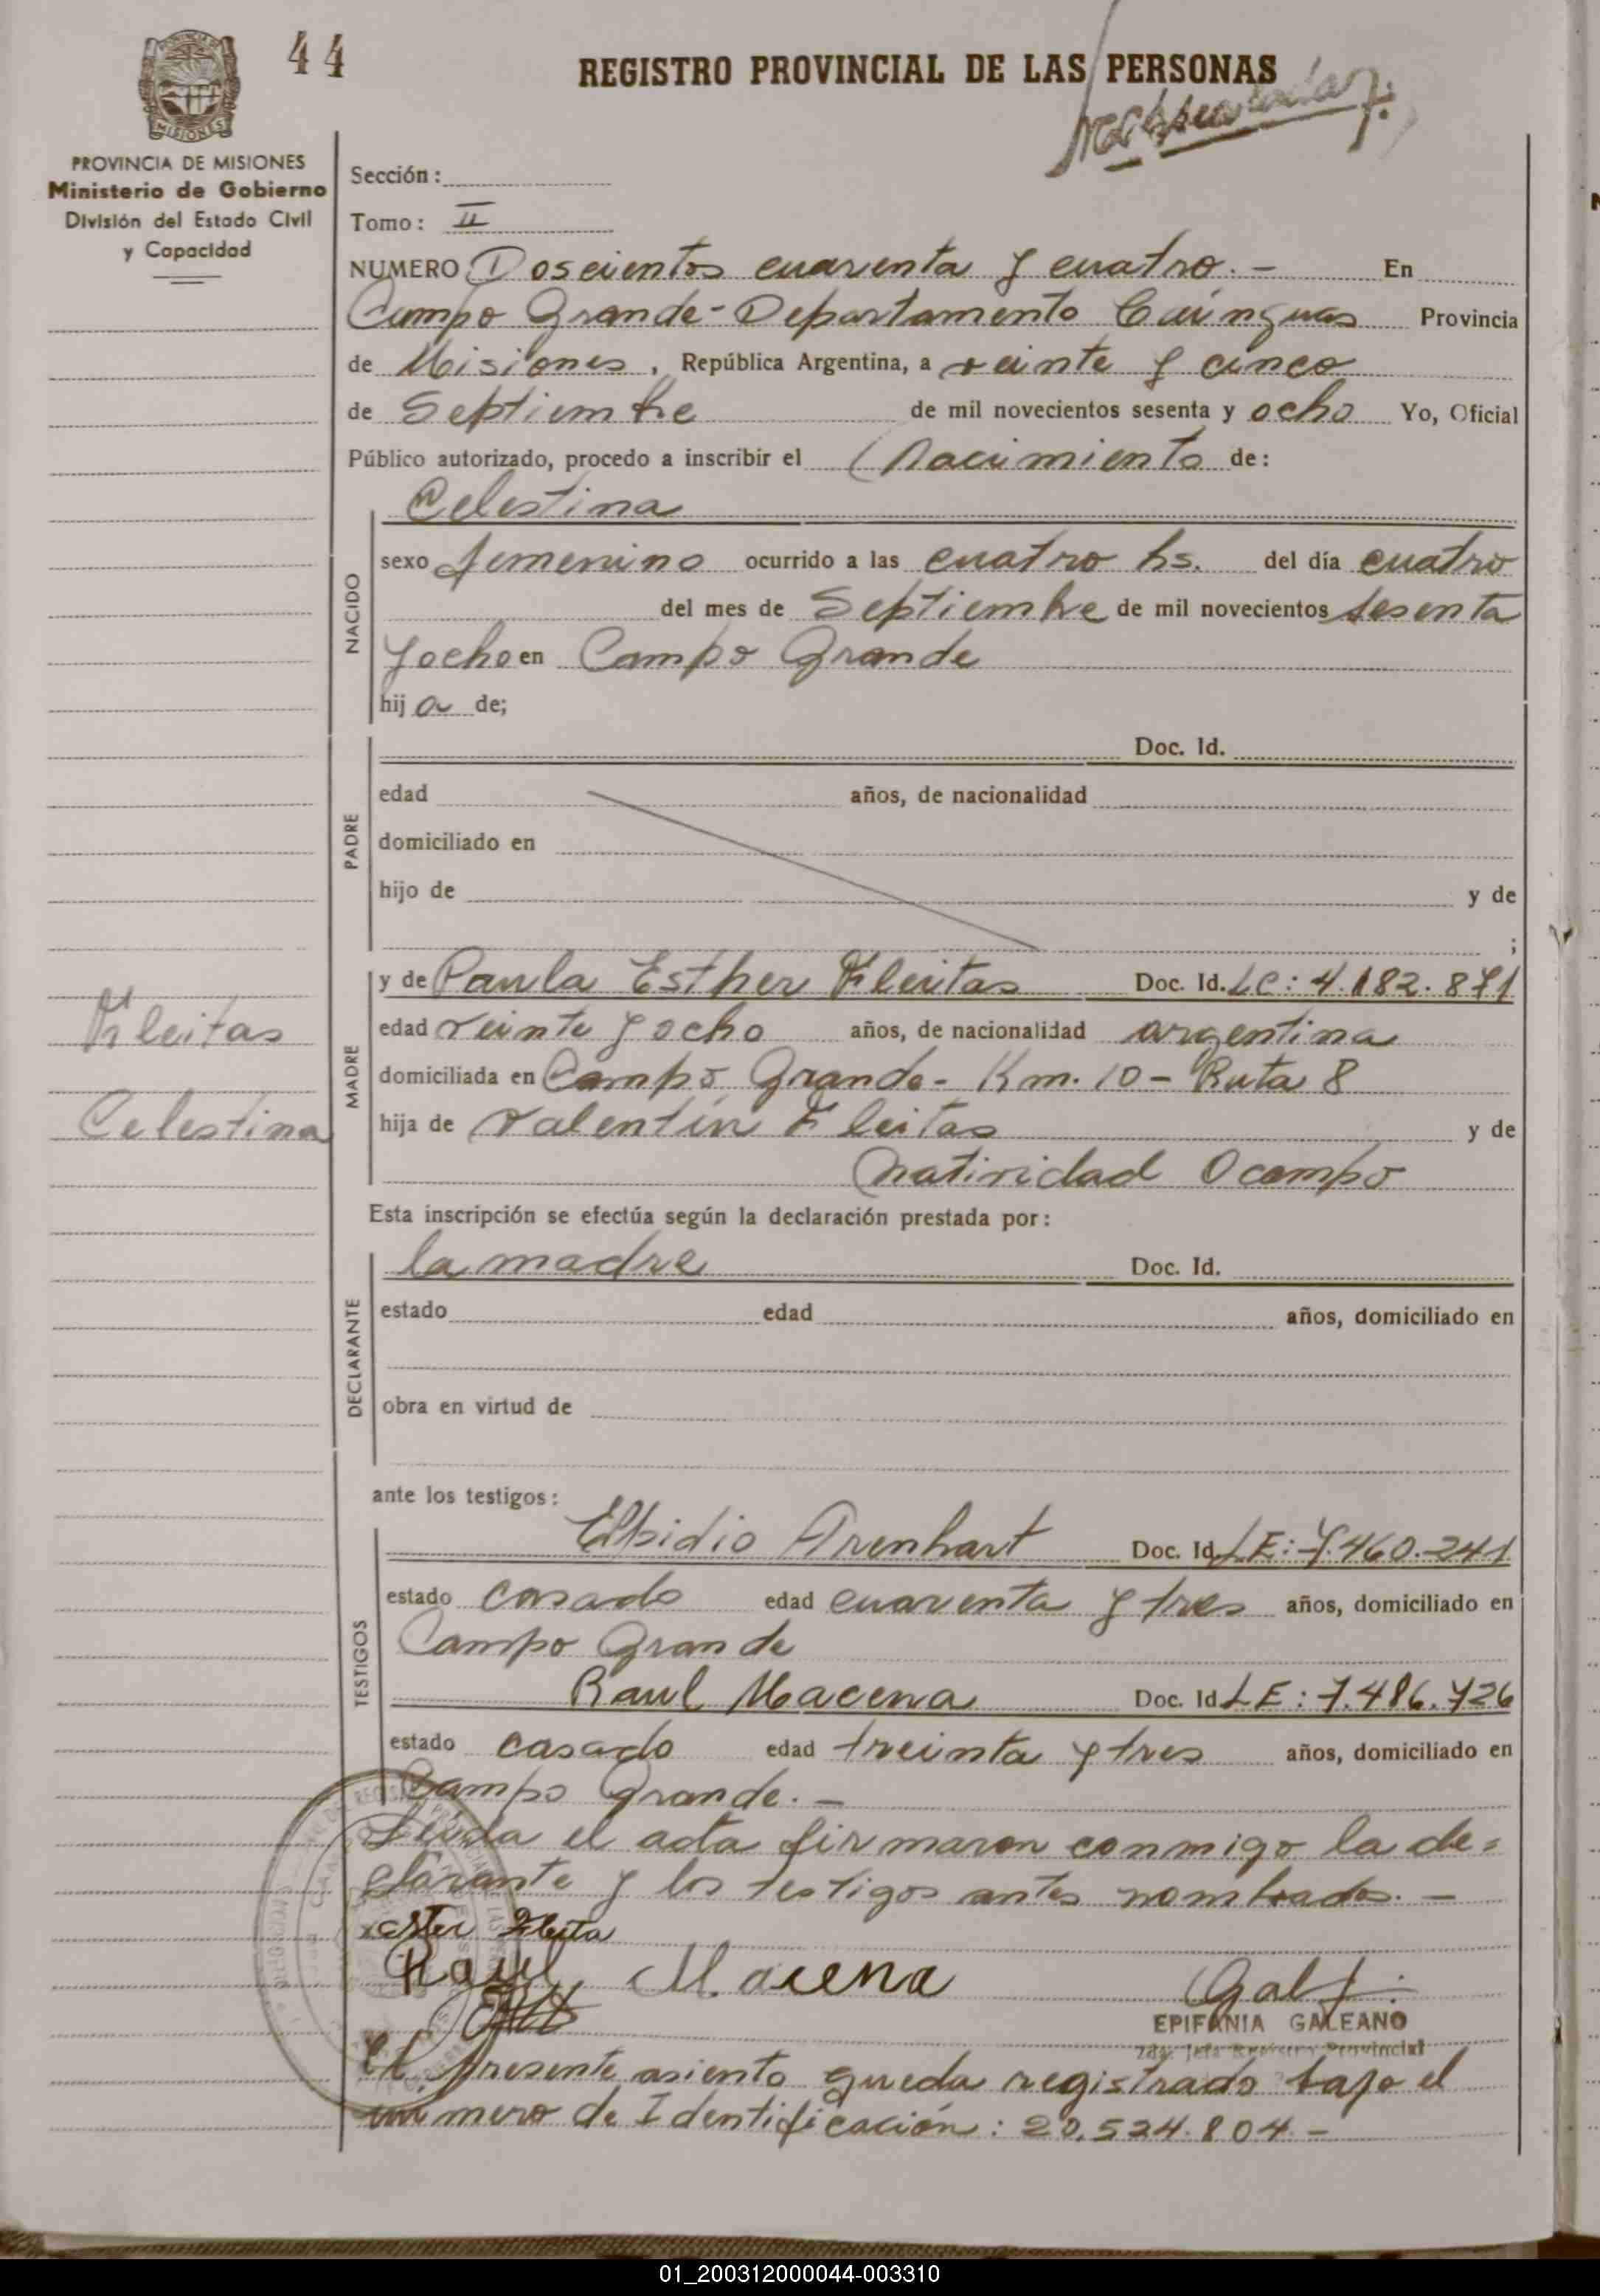 44
REGISTRO PROVINCIAL DE LAS PERSONAS
MISIONES
PROVINCIA DE MISIONES
Ministerio de Gobierno
División del Estado Civil
y Capacidad
Sección:
Tomo: II
NUMERO Doscientos cuarenta y cuatro.- En
Campo Grande - Departamento Cainguas Provincia
de Misiones, República Argentina, a veinte y cinco
de Septiembre de mil novecientos sesenta y ocho Yo, Oficial
Público autorizado, procedo a inscribir el Nacimiento de:
Celestina
NACIDO
sexo femenino ocurrido a las cuatro hs. del día cuatro
del mes de Septiembre de mil novecientos sesenta
y ocho en Campo Grande
hija de;
PADRE
Doc. Id.
edad años, de nacionalidad
domiciliado en
hijo de y de
;
MADRE
y de Paula Esther Fleitas Doc. Id. LC: 4.182.871
Fleitas
edad veinte y ocho años, de nacionalidad argentina
domiciliada en Campo Grande - Km. 10 - Ruta 8
Celestina
hija de Valentín Fleitas y de
Natividad Ocampo
Esta inscripción se efectúa según la declaración prestada por:
DECLARANTE
la madre Doc. Id.
estado edad años, domiciliado en
obra en virtud de
ante los testigos:
TESTIGOS
Elpidio Arenhart Doc. Id LE: 7.460.241
estado casado edad cuarenta y tres años, domiciliado en
Campo Grande
Raul Macena Doc. Id LE: 7.486.726
estado casado edad treinta y tres años, domiciliado en
Campo Grande.-
Leida el acta firmaron conmigo la de=
clarante y los testigos antes nombrados.-
Raul Macena
EPIFANIA GALEANO
El presente asiento queda registrado bajo el
numero de Identificación: 20.524.804.-
01_200312000044-003310